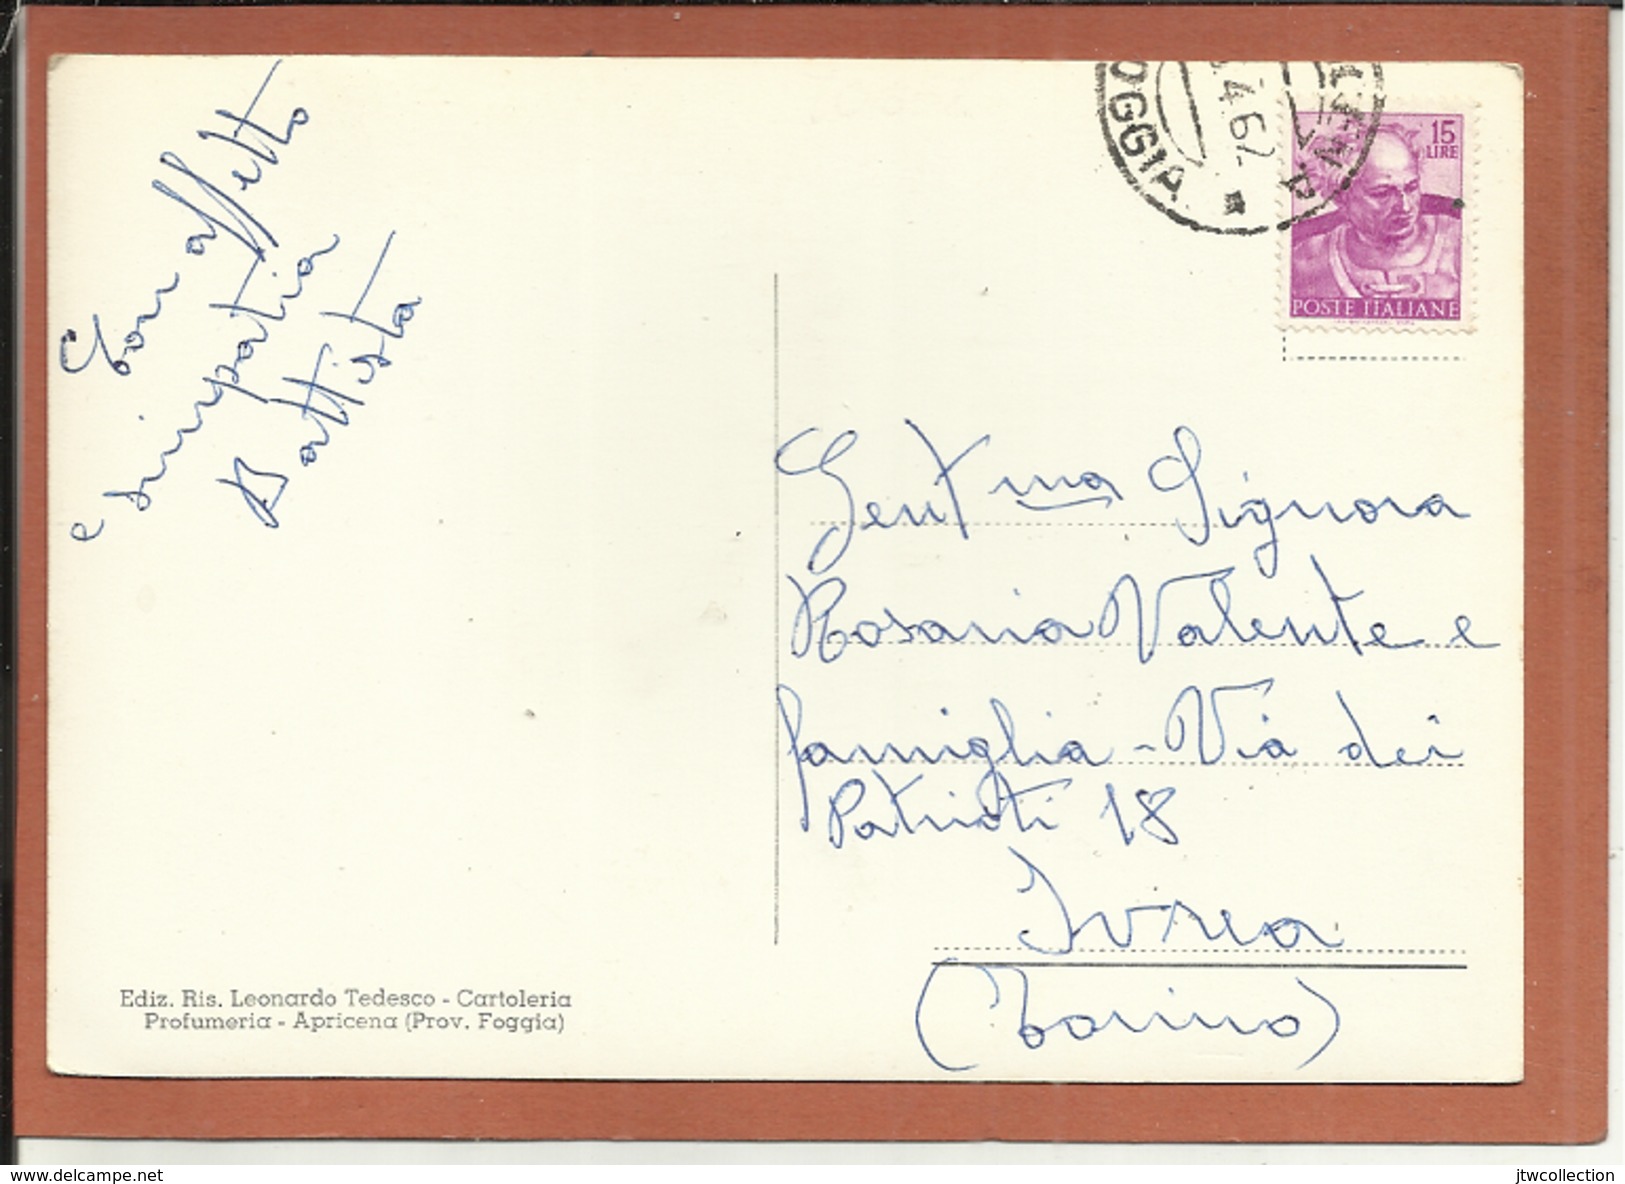 Con affetto
e simpatia
Battista
OGGIA
.4.62
15
LIRE
POSTE ITALIANE
Gent.ma Signora
Rosaria Valente e
famiglia - Via dei
Patrioti 18
Ivrea
(Torino)
Ediz. Ris. Leonardo Tedesco - Cartoleria
Profumeria - Apricena (Prov. Foggia)
www.delcampe.net
jtwcollection